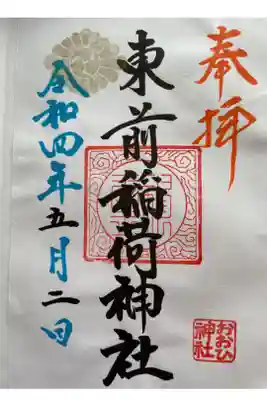 奉拝
東前稲荷神社
令和四年五月二日
おおひ
神社